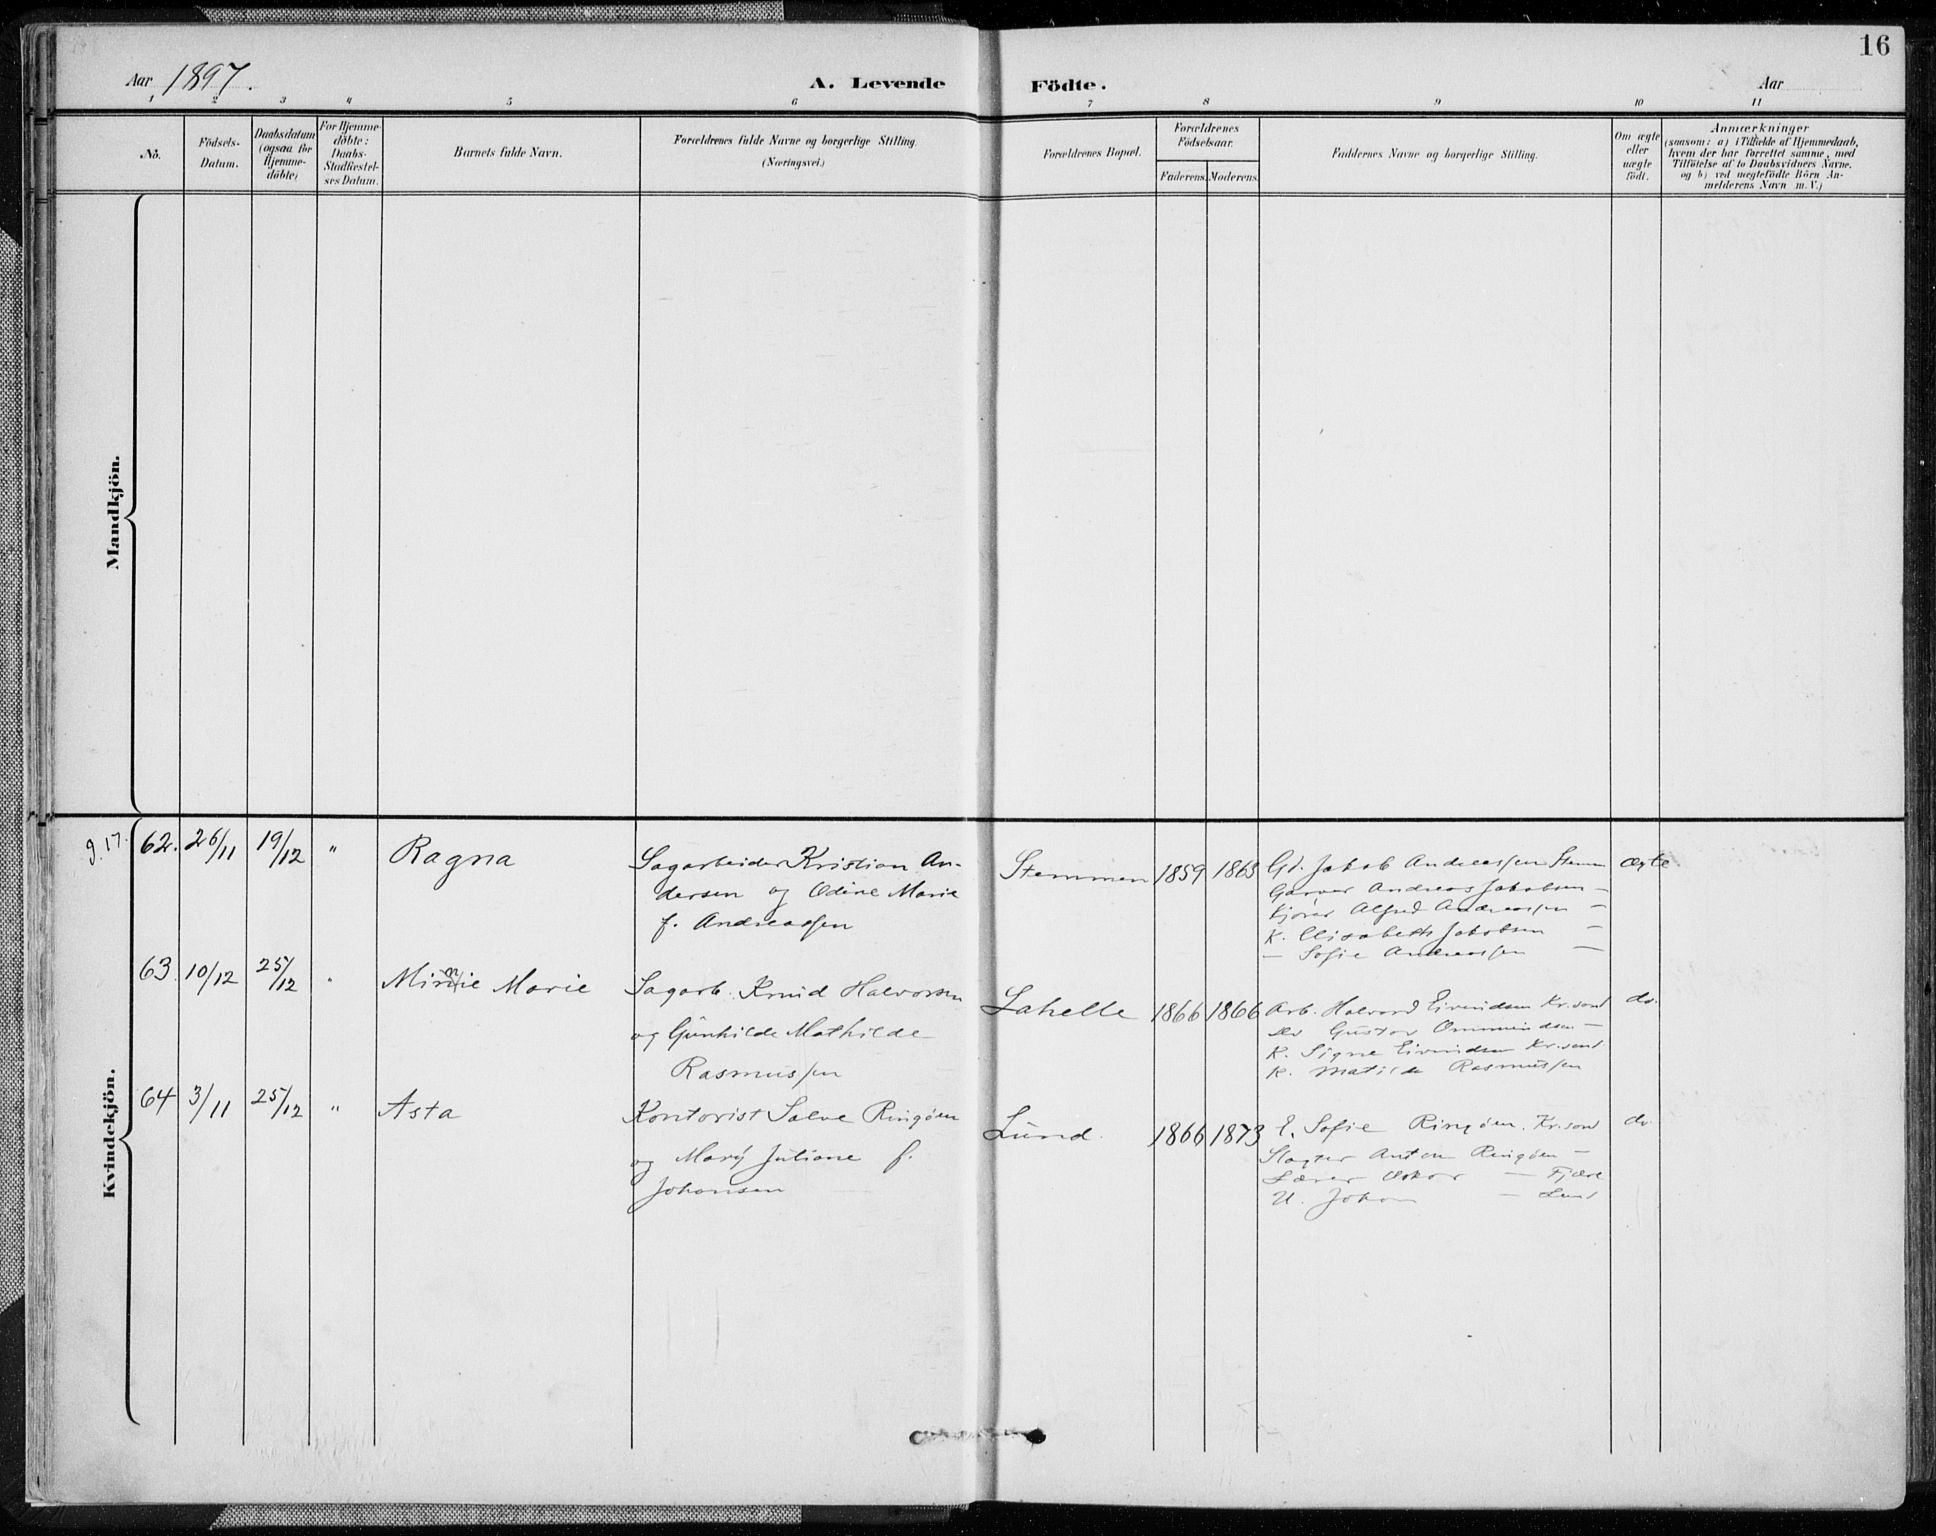 16
Aar 1897.
A. Levende Födte.
Aar
1 2 3 4 5 6 7 8 9 10 11
No.
Födsels-
Datum.
Daabsdatum
(ogsaa for
Hjemme-
döbte)
For Hjemme-
döbte:
Daabs-
Stadfæstel-
ses Datum.
Barnets fulde Navn.
Forældrenes fulde Navne og borgerlige Stilling.
(Næringsvei.)
Forældrenes Bopæl.
Forældrenes
Födselsaar.
Faderens. Moderens.
Faddernes Navne og borgerlige Stilling.
Om ægte
eller
uægte
födt.
Anmærkninger
(saasom: a) i Tilfælde af Hjemmedaab,
hvem der har forrettet samme, med
Tilföielse af to Daabsvidners Navne,
og b) ved uegtefödte Börn An-
melderens Navn m.V.)
Mandkjön.
Kvindekjön.
g. 17.
62. 26/11 19/12 " Ragna
Sagarbeider Kristian An-
dersen og Odine Marie
f. Andreassen
Stemmen 1859 1865
Gd. Jakob Andreassen Stemm
Garver Andreas Jakobsen —
Kjører Alfred Andreassen —
K. Elisabeth Jakobsen —
— Sofie Andreassen —
ægte
63. 10/12 25/12 " Minnie Marie
Sagarb. Knud Halvorsen
og Gunhilde Mathilde
Rasmussen
Lahelle 1866 1866
Arb. Halvord Eivindsen Kr.sand
Gustav Ommundsen —
K. Signe Eivindsen Kr.sand
K. Matilde Rasmussen
do.
64 3/11 25/12 " Asta
Kontorist Salve Ringöen
og Mary Juliane f.
Johansen
Lund. 1866 1873
E. Sofie Ringöen. Kr.sand
Slagter Anton Ringöen —
Lærer Oskar — Fjære
U. Johan — Lund
do.